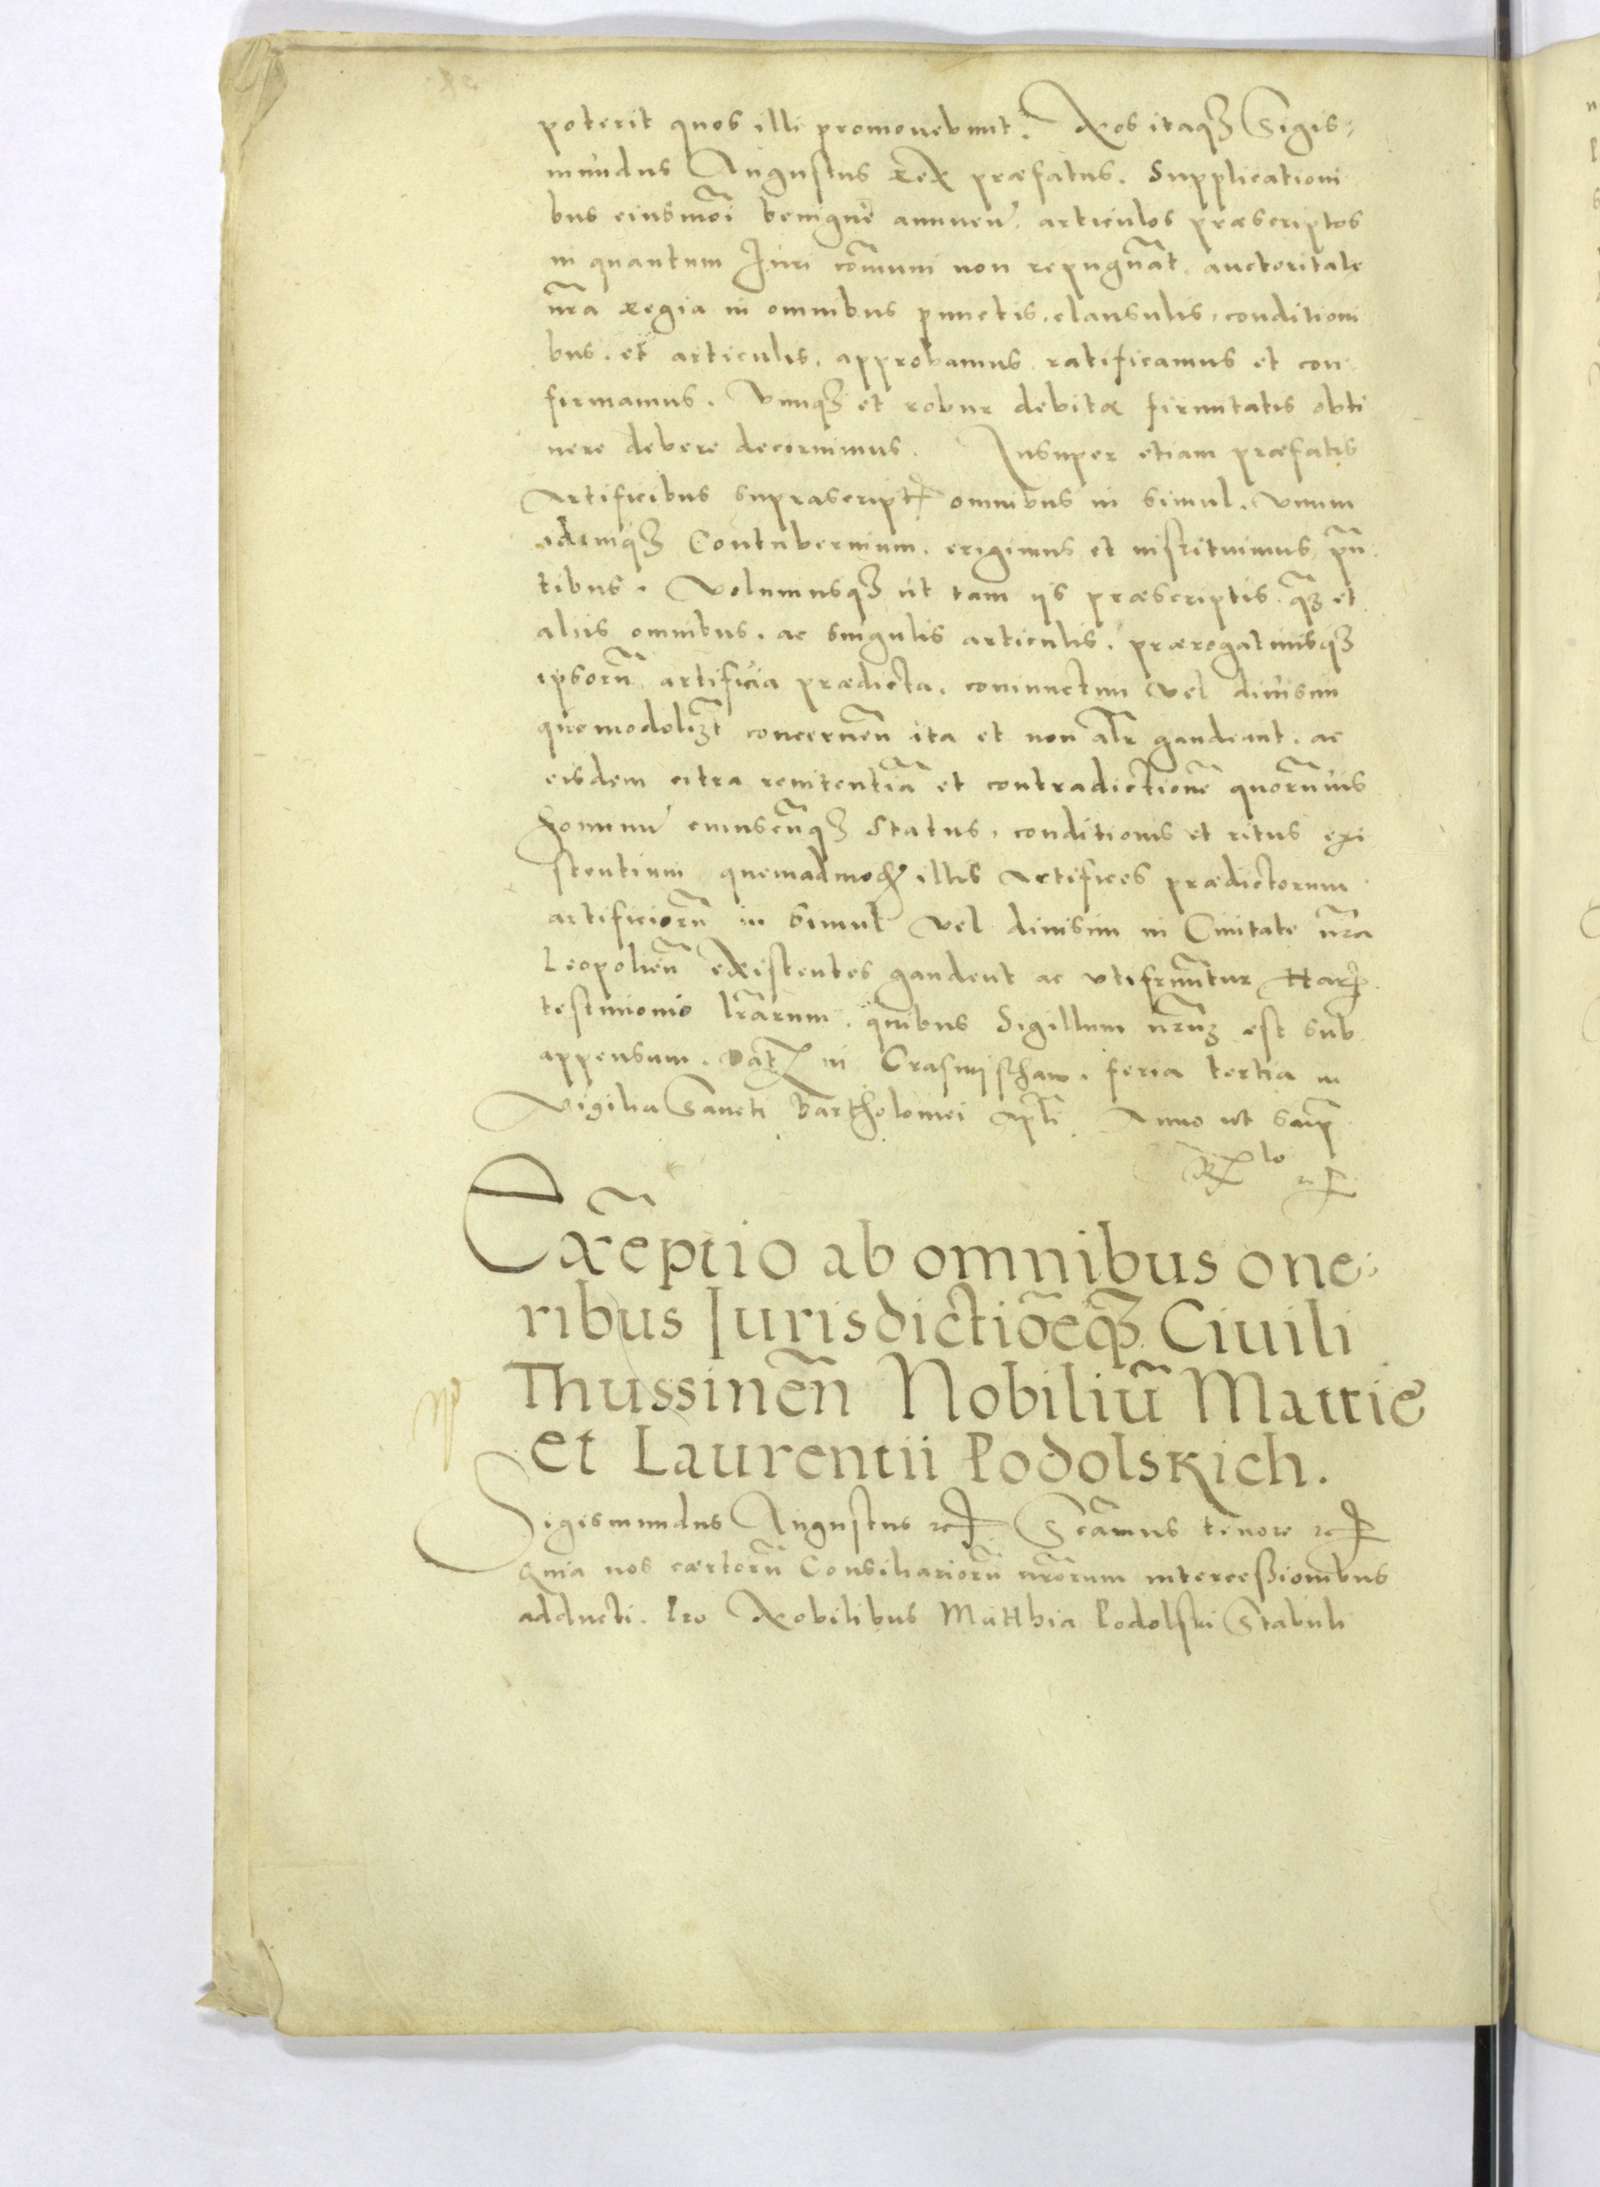 poterit quos illi promovebunt. Nos itaq₃ Sigis-
mundus Augustus Rex præfatus. Supplicationi
bus eiusmōi benigne annuen̄. articulos præscriptos
in quantum Juri cōmuni non repugnāt. auctoritate
nr̄a Regia in omnibus punctis, clausulis, conditioni
bus, et articulis, approbamus ratificamus et con
firmamus. Vimq₃ et robur debitæ firmitatis obti
nere debere decernimus. Insuper etiam præfatis
Artificibus suprascript̄ omnibus in simul. Vnum
idemq₃ Contubernium, erigimus et instituimus pn̄
tibus. Volumusq₃ ut tam ijs præscriptis q̄₃ et
alijs omnibus, ac singulis articulis, prærogatiuisq₃
ipsorū artificia prædicta, coniunctim vel diuisim
quomodolib₃t concernen̄ ita et non alr̄ gaudeant, ac
eisdem citra renitentiā et contradictionē quorūuis
hominū cuiuscūq₃ status, conditionis et ritus exi
stentium quemadmod̄ illis Artifices prædictorum
artificiorū in simul vel diuisim in Ciuitate nr̄a
Leopolien̄ existentes gaudent ac vtifruūntur Har̄
testimonio lr̄arum, quibus Sigillum nr̄u₃ est sub
appensum. Dat̄ in Crasnijschaw, feria tertia in
Vigilia Sancti Bartholomei Apl̄i Anno ut sup̄
Exēptio ab omnibus one-
ribus Jurisdictiōeq₃ Ciuili
Thussinen̄ Nobiliū Mattie
et Laurentii Podolskich.
Sigismundus Augustus &c Sc̄amus tenore &c
Quia nos cærtorū Consiliariorū nr̄orum intercessionibus
adducti. Pro Nobilibus Matthia Podolski Stabuli